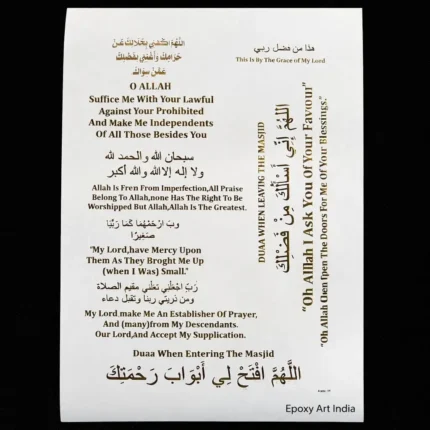 اللَّهُمَّ اكْفِنِي بِحَلَالِكَ عَنْ
حَرَامِكَ وَأَغْنِنِي بِفَضْلِكَ
عَمَّنْ سِوَاكَ
O ALLAH
Suffice Me With Your Lawful
Against Your Prohibited
And Make Me Independents
Of All Those Besides You
سبحان الله والحمد لله
ولا إله إلا الله والله أكبر
Allah Is Fren From Imperfection,All Praise
Belong To Allah,none Has The Right To Be
Worshipped But Allah,Allah Is The Greatest.
كَمَا رَبَّيَا
صَغِيرًا
"My Lord,have Mercy Upon
Them As They Broght Me Up
(when I Was) Small."
مقيم الصلاة
ومن ذريتي ربنا وتقبل دعاء
My Lord.make Me An Establisher Of Prayer,
And (many)from My Descendants.
Our Lord,And Accept My Supplication.
Duaa When Entering The Masjid
اللَّهُمَّ افْتَحْ لِي أَبْوَابَ رَحْمَتِكَ
هذا من فضل ربي
This Is By The Grace of My Lord
DUAA WHEN LEAVING THE MASJID
اللَّهُمَّ إِنِّي أَسْأَلُكَ مِنْ فَضْلِكَ
"Oh Alllah I Ask You Of Your Favour"
"Oh Allah Open The Doors For Me Of Your Blessings."
Epoxy Art India